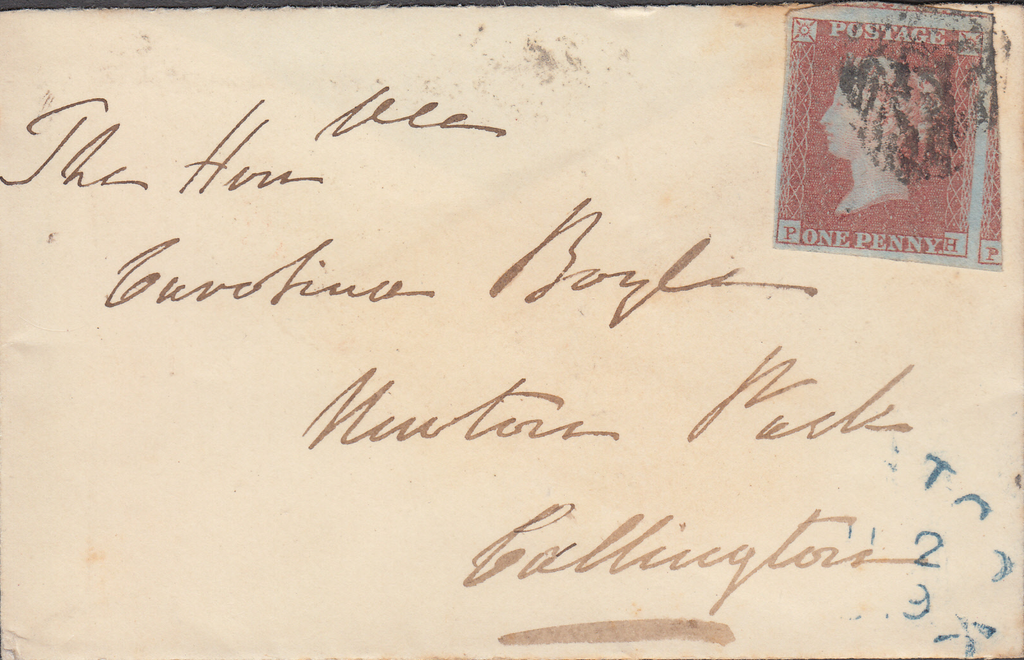 The Honble
Carolina Boyle
Newton Park
Callington
POSTAGE
P ONE PENNY H P
2
9